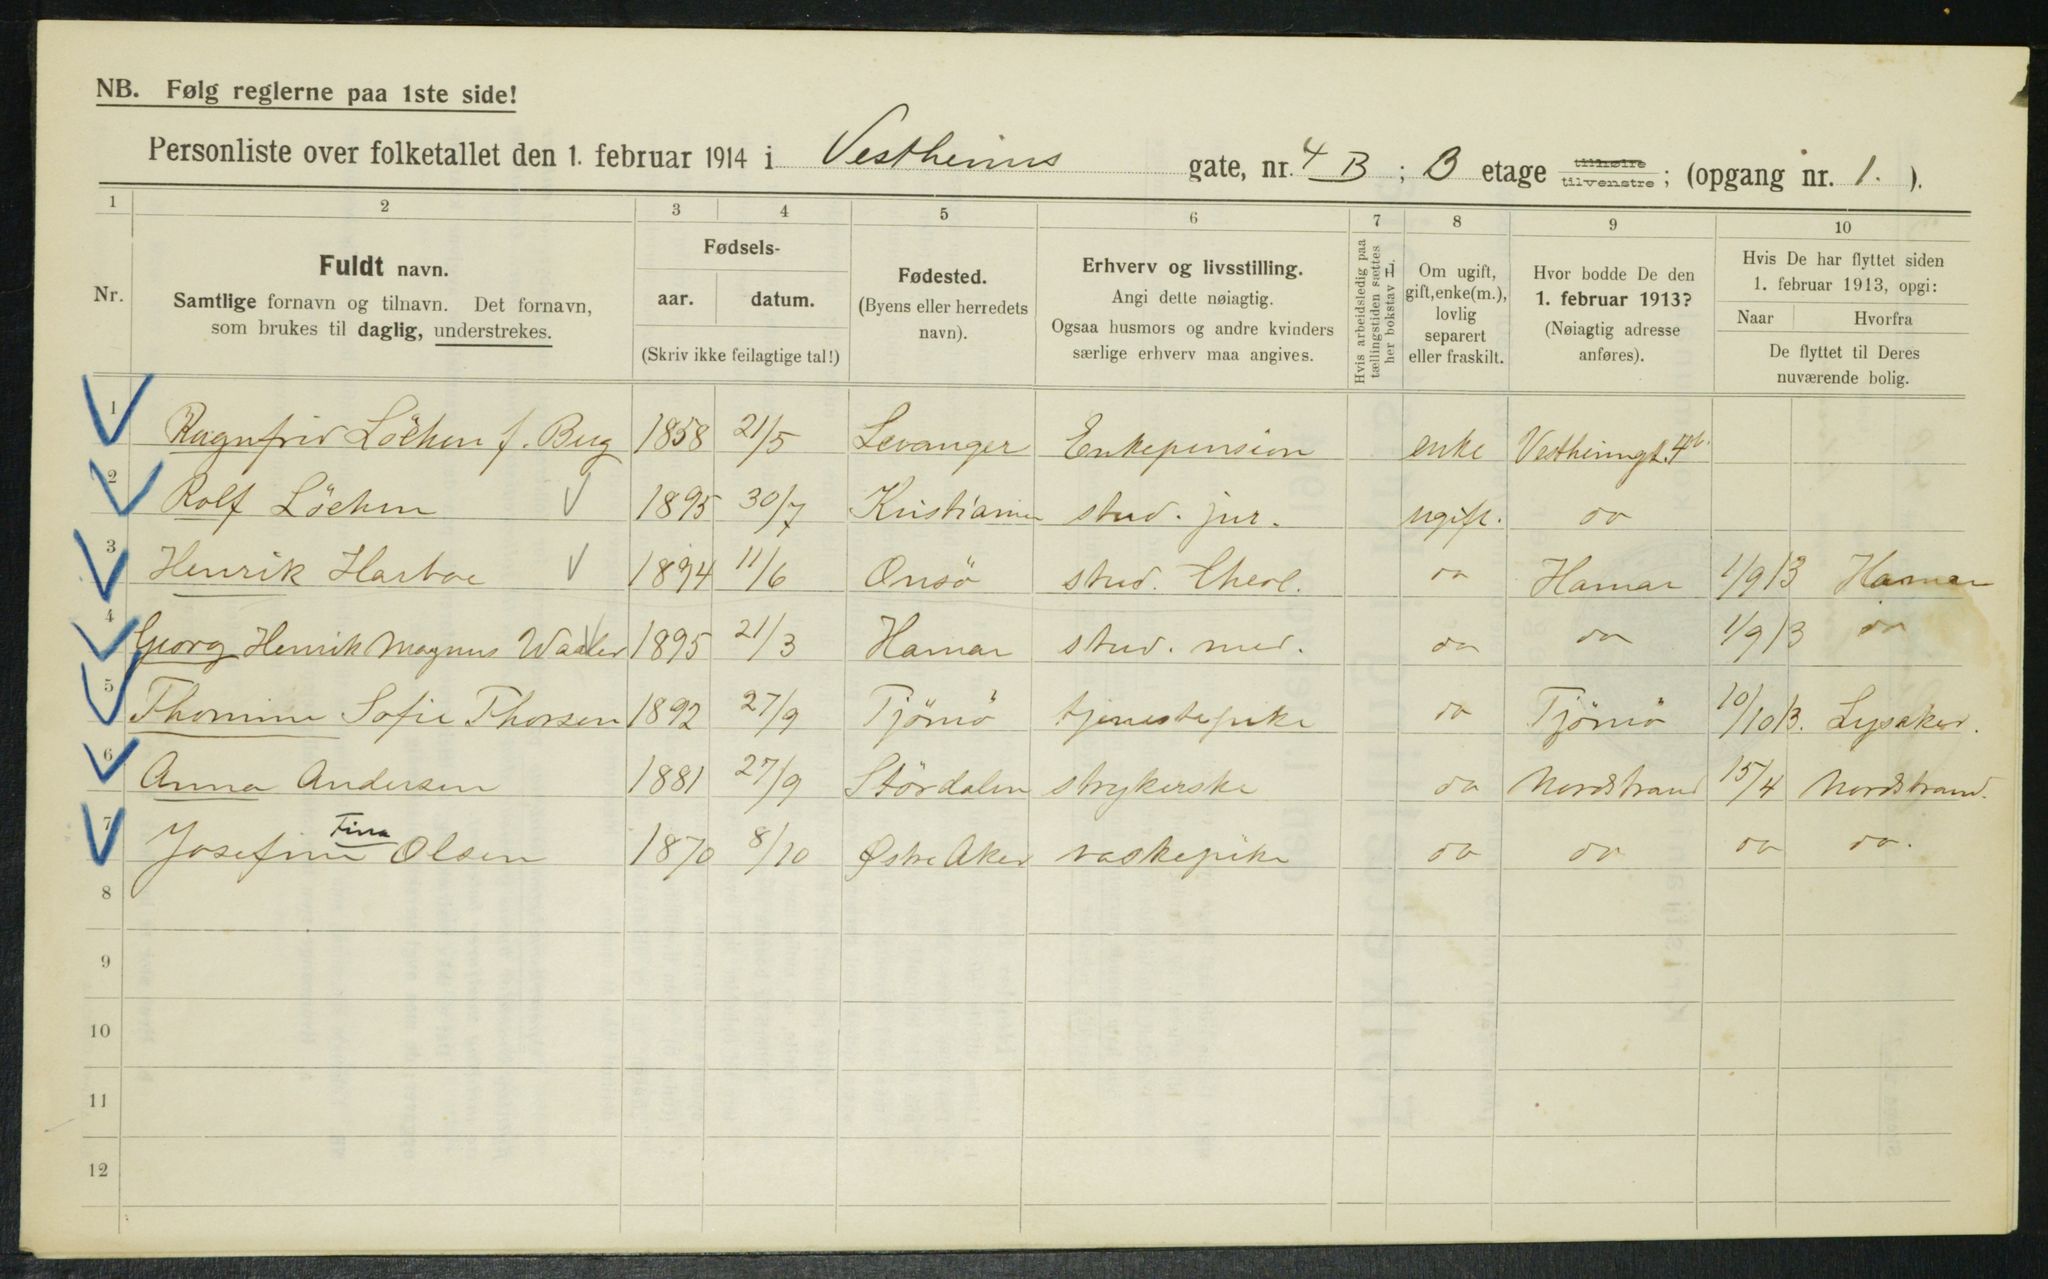 NB. Følg reglerne paa 1ste side!
Personliste over folketallet den 1. februar 1914 i Vestheims gate, nr. 4 B ; B etage tilhøire tilvenstre ; (opgang nr. 1. ).
1 2 3 4 5 6 7 8 9 10
Nr.
Fuldt navn.
Samtlige fornavn og tilnavn. Det fornavn,
som brukes til daglig, understrekes.
Fødsels-
aar. datum.
(Skriv ikke feilagtige tal!)
Fødested.
(Byens eller herredets
navn).
Erhverv og livsstilling.
Angi dette nøiagtig.
Ogsaa husmors og andre kvinders
særlige erhverv maa angives.
Hvis arbeidsledig paa
tællingstiden sættes
her bokstav L.
Om ugift,
gift, enke(m.),
lovlig
separert
eller fraskilt.
Hvor bodde De den
1. februar 1913?
(Nøiagtig adresse
anføres).
Hvis De har flyttet siden
1. februar 1913, opgi:
Naar Hvorfra
De flyttet til Deres
nuværende bolig.
1 Ragnfrid Löchen f. Berg 1858 21/5 Levanger Enkepension enke Vestheimsgt. 4b.
2 Rolf Löchen 1895 30/7 Kristiania stud. jur. ugift. do
3 Henrik Harboe 1894 11/6 Onsö stud. theol. do Hamar 1/9 13 Hamar
4 Georg Henrik Magnus Waaler 1895 21/3 Hamar stud. med. do do 1/9 13 do
5 Thomine Sofie Thorsen 1892 27/9 Tjömö tjenestepike do Tjömö 10/10 13. Lysaker.
6 Anna Andersen 1881 27/9 Stördalen strykerske do Nordstrand 15/4 Nordstrand.
7 Josefine Fina Olsen 1870 8/10 Østre Aker vaskepike do do do do.
8
9
10
11
12